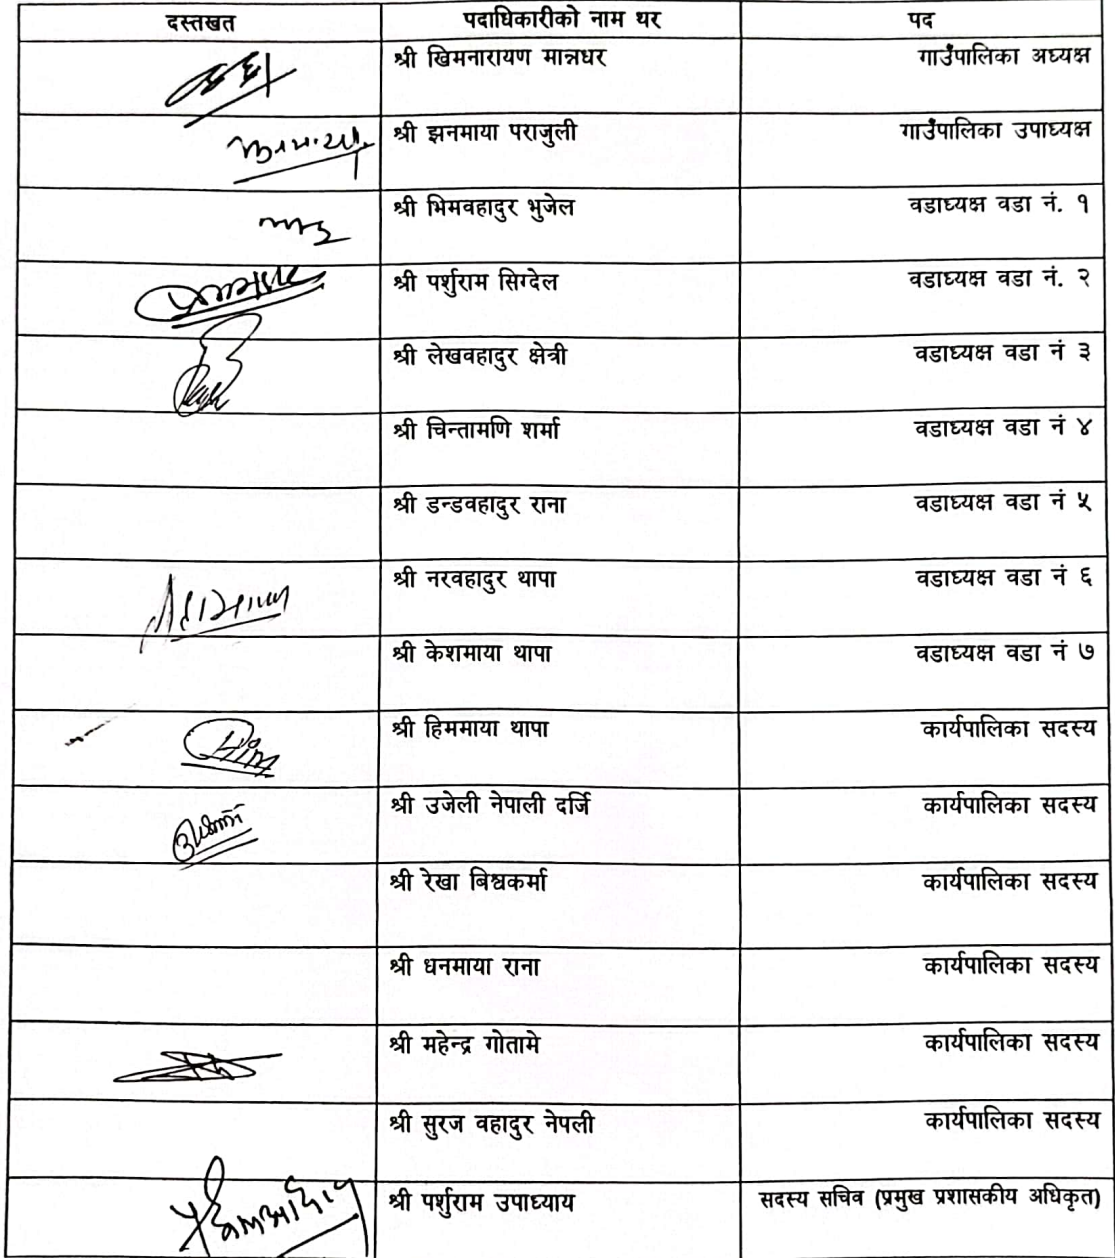 दस्तखत पदाधिकारीको नाम थर पद
श्री खिमनारायण मान्नधर गाउँपालिका अध्यक्ष
झनमाया श्री झनमाया पराजुली गाउँपालिका उपाध्यक्ष
श्री भिमवहादुर भुजेल वडाध्यक्ष वडा नं. १
श्री पर्शुराम सिग्देल वडाध्यक्ष वडा नं. २
श्री लेखवहादुर क्षेत्री वडाध्यक्ष वडा नं ३
श्री चिन्तामणि शर्मा वडाध्यक्ष वडा नं ४
श्री डन्डवहादुर राना वडाध्यक्ष वडा नं ५
श्री नरवहादुर थापा वडाध्यक्ष वडा नं ६
श्री केशमाया थापा वडाध्यक्ष वडा नं ७
श्री हिममाया थापा कार्यपालिका सदस्य
श्री उजेली नेपाली दर्जि कार्यपालिका सदस्य
श्री रेखा बिश्वकर्मा कार्यपालिका सदस्य
श्री धनमाया राना कार्यपालिका सदस्य
श्री महेन्द्र गोतामे कार्यपालिका सदस्य
श्री सुरज वहादुर नेपली कार्यपालिका सदस्य
श्री पर्शुराम उपाध्याय सदस्य सचिव (प्रमुख प्रशासकीय अधिकृत)